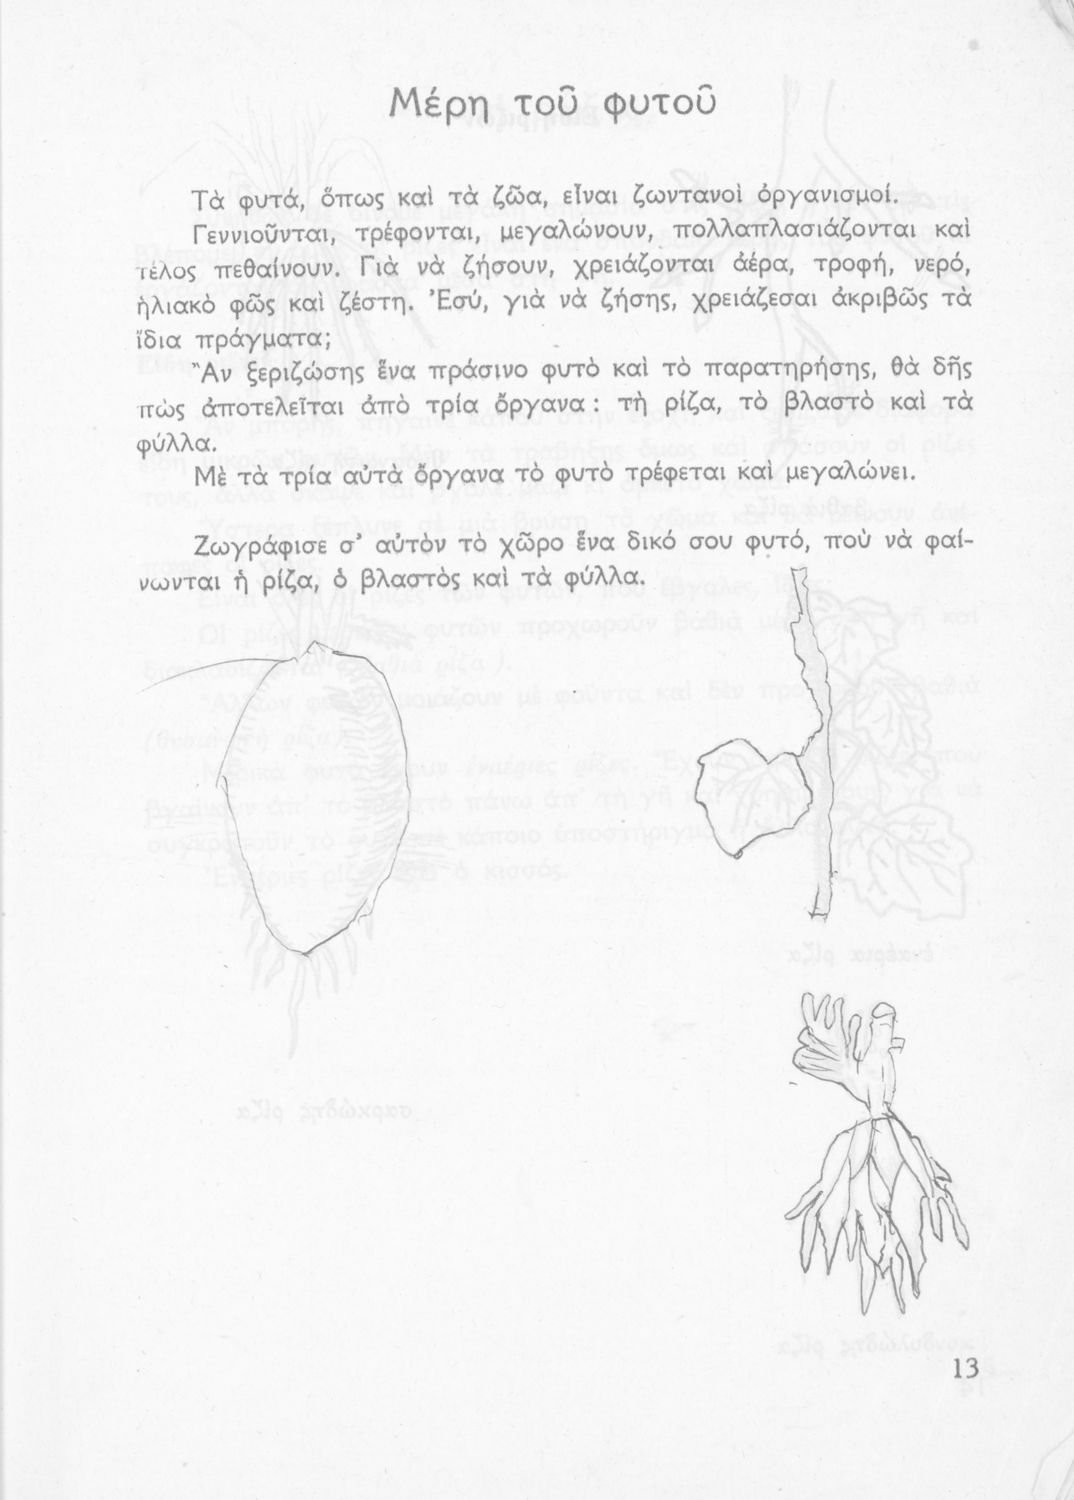 Μέρη τοῦ φυτοῦ
Τὰ φυτά, ὅπως καὶ τὰ ζῶα, εἶναι ζωντανοὶ ὀργανισμοί.
Γεννιοῦνται, τρέφονται, μεγαλώνουν, πολλαπλασιάζονται καὶ
τέλος πεθαίνουν. Γιὰ νὰ ζήσουν, χρειάζονται ἀέρα, τροφή, νερό,
ἡλιακὸ φῶς καὶ ζέστη. Ἐσύ, γιὰ νὰ ζήσης, χρειάζεσαι ἀκριβῶς τὰ
ἴδια πράγματα;
Ἂν ξεριζώσης ἕνα πράσινο φυτὸ καὶ τὸ παρατηρήσης, θὰ δῆς
πὼς ἀποτελεῖται ἀπὸ τρία ὄργανα: τὴ ρίζα, τὸ βλαστὸ καὶ τὰ
φύλλα.
Μὲ τὰ τρία αὐτὰ ὄργανα τὸ φυτὸ τρέφεται καὶ μεγαλώνει.
Ζωγράφισε σ' αὐτὸν τὸ χῶρο ἕνα δικό σου φυτό, ποὺ νὰ φαί-
νωνται ἡ ρίζα, ὁ βλαστὸς καὶ τὰ φύλλα.
13